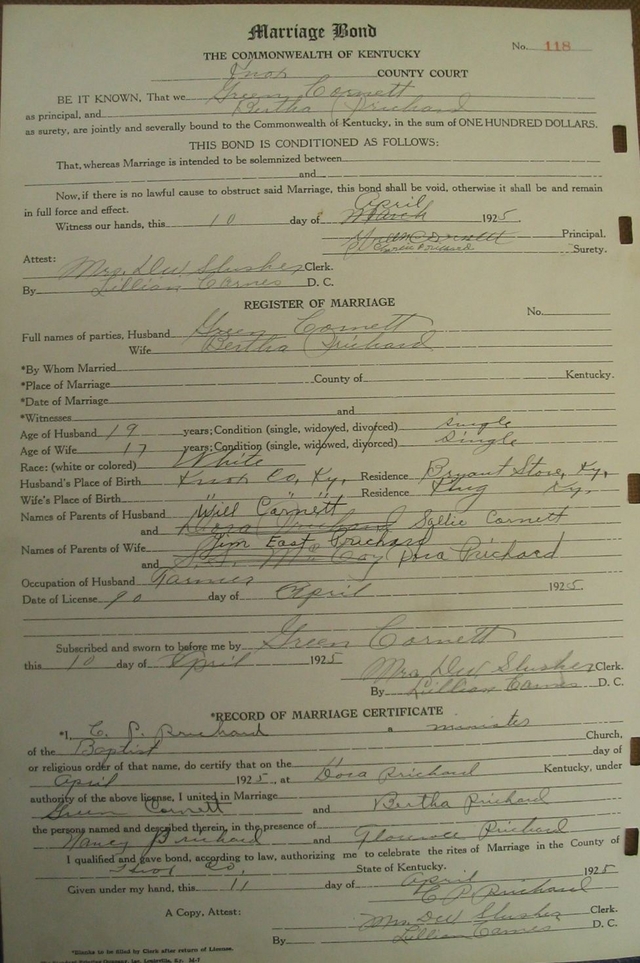 Marriage Bond
No. 118
THE COMMONWEALTH OF KENTUCKY
Knox COUNTY COURT
BE IT KNOWN, That we Green Cornett
as principal, and Bertha Prichard
as surety, are jointly and severally bound to the Commonwealth of Kentucky, in the sum of ONE HUNDRED DOLLARS.
THIS BOND IS CONDITIONED AS FOLLOWS:
That, whereas Marriage is intended to be solemnized between
and
Now, if there is no lawful cause to obstruct said Marriage, this bond shall be void, otherwise it shall be and remain
in full force and effect. April
Witness our hands, this 10 day of March 1925
Green Cornett Principal.
Prichard Surety.
Attest: Mrs. D W Slusher Clerk.
By Lillian Carnes D. C.
REGISTER OF MARRIAGE
No.
Full names of parties, Husband Green Cornett
Wife Bertha Prichard
*By Whom Married
*Place of Marriage County of Kentucky.
*Date of Marriage
*Witnesses and
Age of Husband 19 years; Condition (single, widowed, divorced) single
Age of Wife 17 years; Condition (single, widowed, divorced) single
Race: (white or colored) White
Husband's Place of Birth Knox Co, Ky, Residence Bryant Store, Ky,
Wife's Place of Birth " " " Residence King Ky,
Names of Parents of Husband Will Cornett
and Dora Prichard Sallie Cornett
Names of Parents of Wife Jim East Prichard
and McCoy Dora Prichard
Occupation of Husband Farmer
Date of License 10 day of April 1925.
Subscribed and sworn to before me by Green Cornett
this 10 day of April 1925
Mrs D W Slusher Clerk.
By Lillian Carnes D. C.
*RECORD OF MARRIAGE CERTIFICATE
*I, C. P. Prichard a minister
of the Baptist Church,
or religious order of that name, do certify that on the day of
April 1925, at Dora Prichard Kentucky, under
authority of the above license, I united in Marriage
Green Cornett and Bertha Prichard
the persons named and described therein, in the presence of
Nancy Prichard and Florence Prichard
I qualified and gave bond, according to law, authorizing me to celebrate the rites of Marriage in the County of
Knox Co. State of Kentucky.
Given under my hand, this 11 day of April 1925
C P Prichard
A Copy, Attest: Mrs. D W Slusher Clerk.
By Lillian Carnes D. C.
*Blanks to be filled by Clerk after return of License.